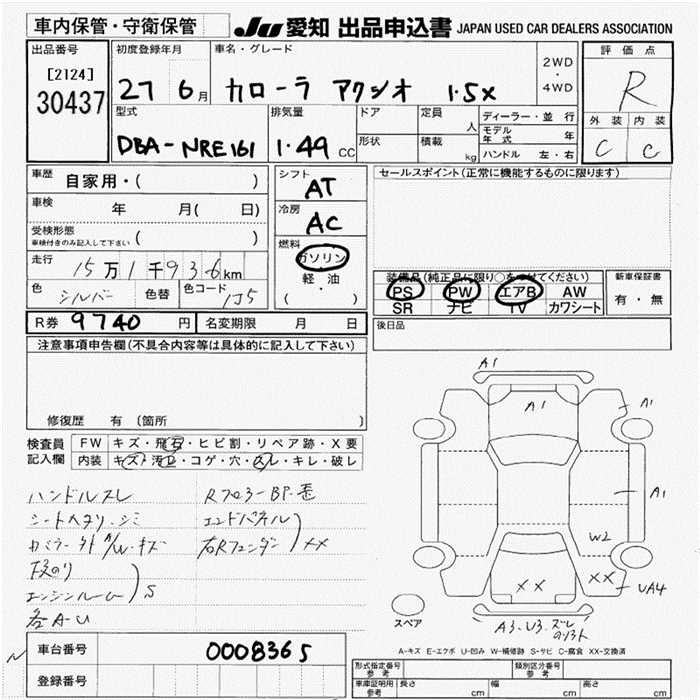 車内保管・守衛保管
JU 愛知 出品申込書 JAPAN USED CAR DEALERS ASSOCIATION
出品番号
[2124]
30437
初度登録年月
27 6月
車名・グレード
カローラ アクシオ 1.5X
2WD
・
4WD
評価点
R
外装 内装
C C
型式
DBA-NRE161
排気量
1.49 CC
ドア
形状
定員
人
積載
kg
ディーラー・並行
モデル年式 年
ハンドル 左・右
車歴 自家用・( )
車検 年 月( 日)
受検形態
車検付きのみ記入して下さい ( )
走行 15万1千936km
色 シルバー 色替 色コード 1J5
シフト
AT
冷房
AC
燃料
ガソリン
軽・油
( )
セールスポイント(正常に機能するものに限ります)
装備品(純正品に限り○をつけてください)
PS PW エアB AW
SR ナビ TV カワシート
新車保証書
有・無
後日品
R券 9740 円 名変期限 月 日
注意事項申告欄(不具合内容等は具体的に記入して下さい)
修復歴 有 〔箇所 〕
検査員
記入欄
FW キズ・飛石・ヒビ割・リペア跡・X要
内装 キズ・汚れ・コゲ・穴・スレ・キレ・破レ
ハンドルスレ
エンドパネル
右Rフェンダー XX
エンジンルーム S
各A-U
A1
A1
A1
A1
W2
XX
XX
UA4
A3.U3.ズレ
スペア
A-キズ E-エクボ U-凹み W-補修跡 S-サビ C-腐食 XX-交換済
車台番号 0008365
登録番号
形式指定番号 参考
類別区分番号 参考
車庫証明用 参考 長さ cm 幅 cm 高さ cm